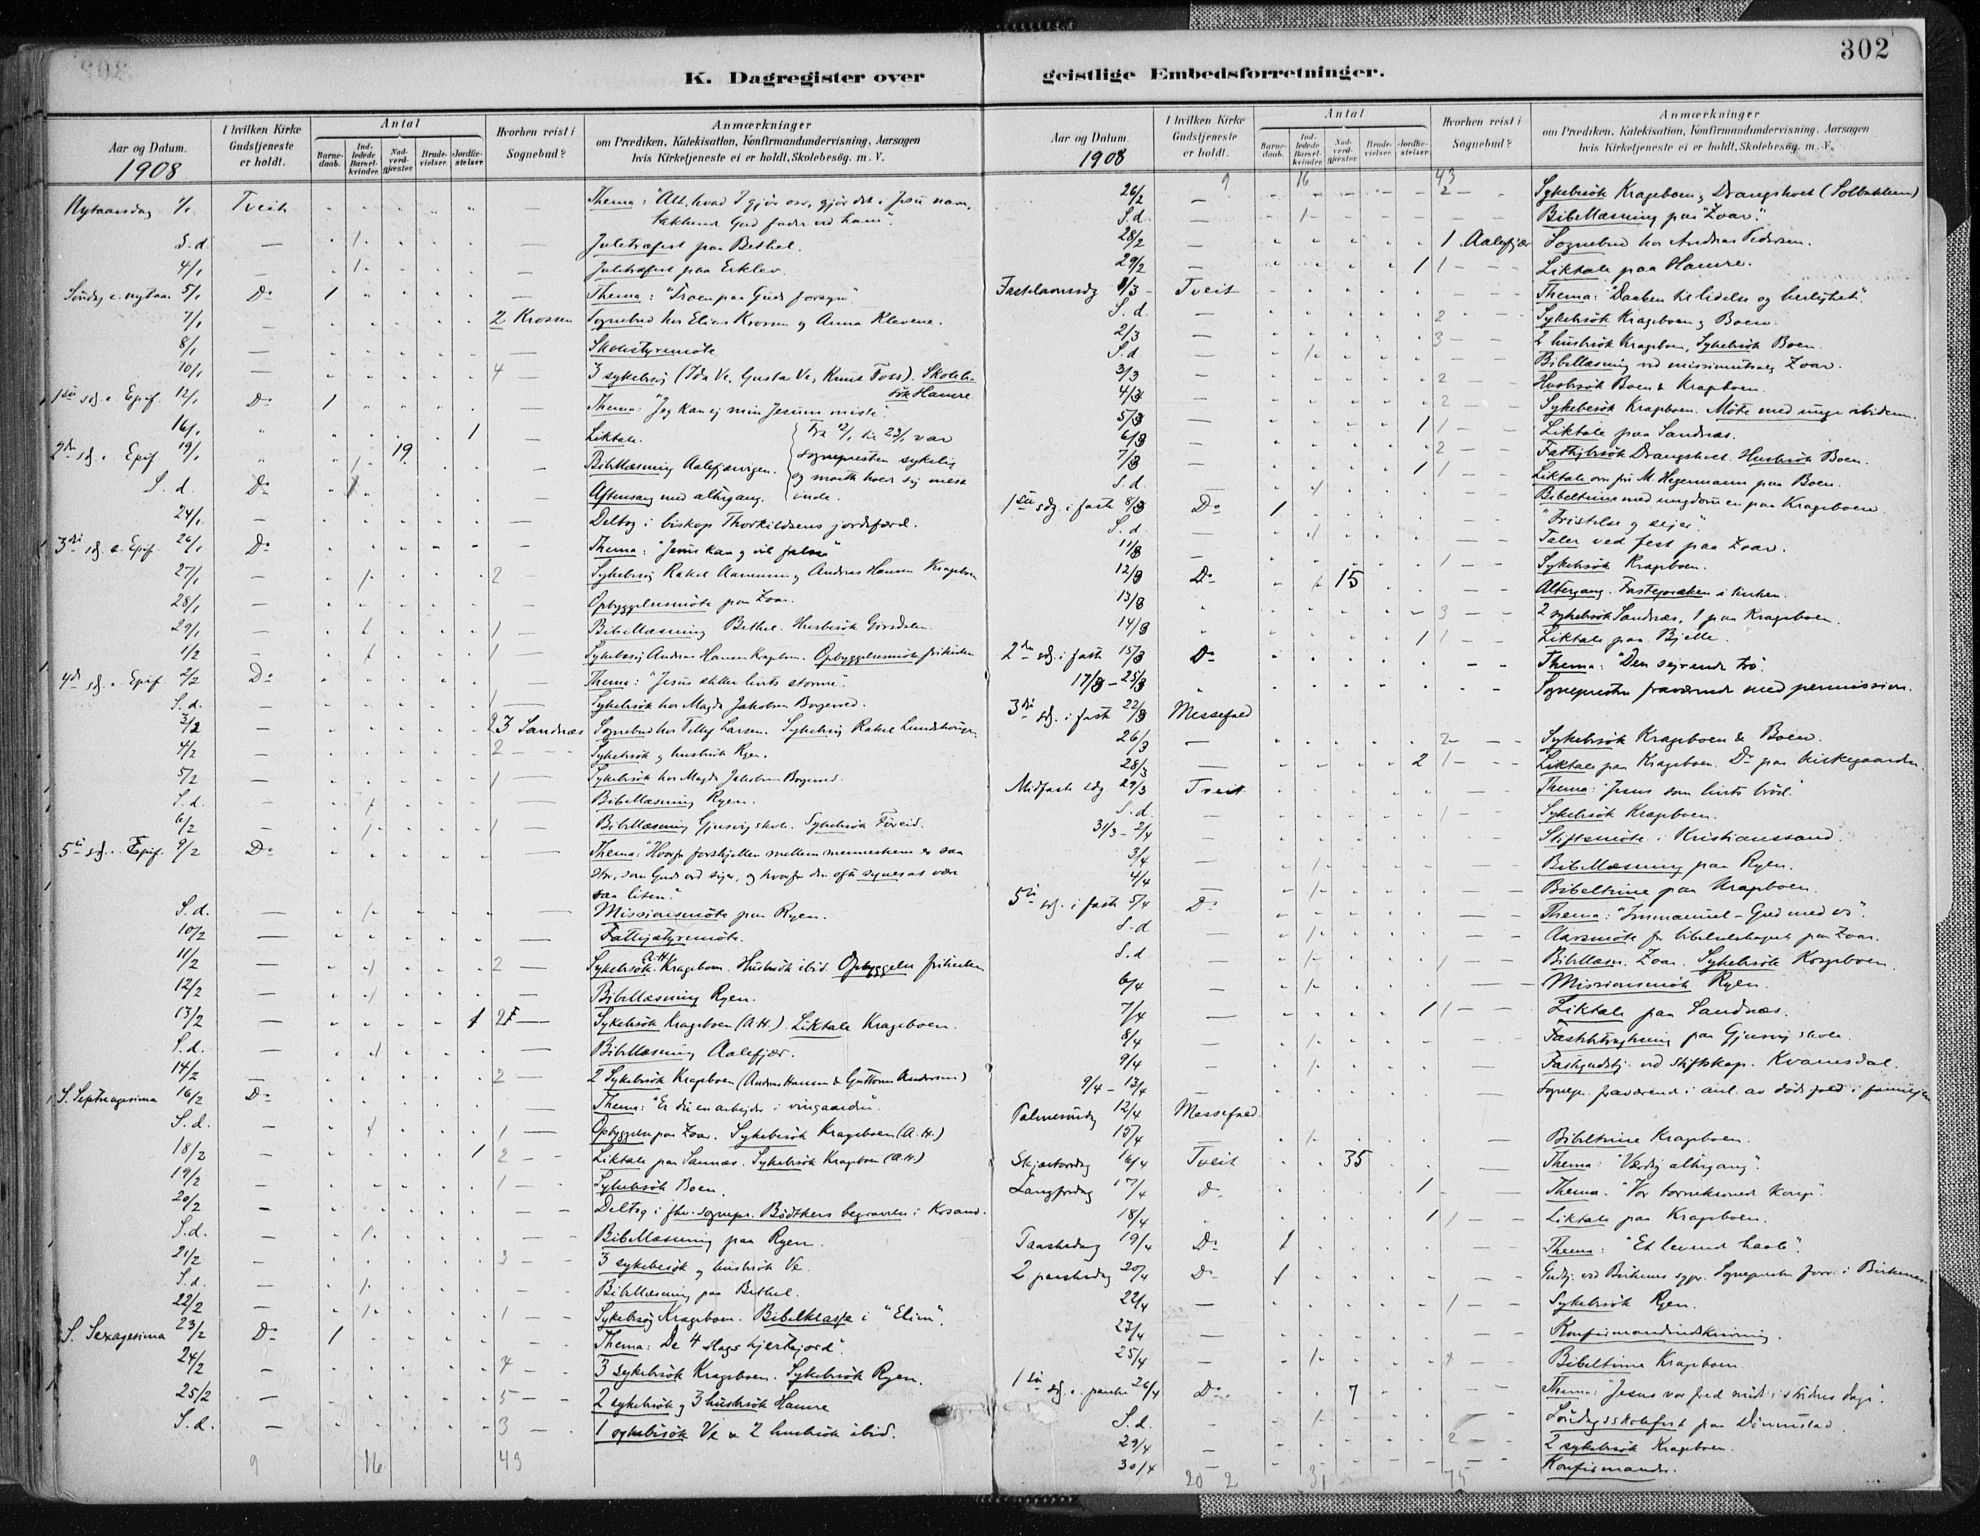 302
K. Dagregister over
geistlige Embedsforretninger.
Aar og Datum.
1908
I hvilken Kirke Gudstjeneste er holdt.
Antal
Barnedaab.
Indledede Barselkvinder.
Nadverdgjester.
Brudevielser.
Jordfæstelser.
Hvorhen reist i Sognebud?
Anmærkninger
om Prædiken, Katekisation, Konfirmandundervisning, Aarsagen
hvis Kirketjeneste ei er holdt, Skolebesög. m. V.
Nytaarsdag 1/1 Tveit Thema: "Alt, hvad I gjör osv., gjör det i Jesu navn,
takkende Gud fader ved ham".
S.d. — 1 — Juletræfest paa Bethel.
4/1 — 1 — Juletræfest paa Erklev.
Söndag e. nytaar 5/1 Do 1 — Thema: "Troen paa Guds forsyn"
7/1 — 2 Krossen Sognebud hos Elias Krossen og Anna Klevene.
8/1 — Skolestyremöte
10/1 — 4 — 3 sykebesög (Ida Ve, Gusta Ve, Knut Foss). Skolebesök Hamre
1ste sdg. e. Epif. 12/1 Do 1 Thema: "Jeg kan ej min Jesum miste".
16/1 1 — Liktale. Fra 12/1 til 23/1 var
2den sdg. e. Epif. 19/1 19 Bibellæsning Aalefjærvigen. sognepresten sykelig
S.d. Do Aftensang med altergang. og maatte holde sig mest inde.
24/1 — Deltog i biskop Thorkildsens jordefærd.
3die sdg. e. Epif. 26/1 Do Thema: "Jesus kan og vil frelse"
27/1 — 1 2 — Sykebesög Rakel Aanensen og Andreas Hansen Krageboen
28/1 — Opbyggelsesmöte paa Zoar.
29/1 — 1 1 — Bibellæsning Bethel. Husbesök
1/2 — 1 1 — Sykebesög Andreas Hansen Krageboen. Opbyggelsesmöte frikirken
4de sdg. e. Epif. 2/2 Do Thema: "Jesus stiller livets storme".
S.d. 1 — Sykebesök hos Magda Jakobsen
3/2 — 3 Sandnæs Sognebud hos Larsen. Sykebesög Rakel
4/2 — 2 — Sykebesök og husbesök Ryen.
5/2 — 1 — Sykebesök hos Magda Jakobsen
S.d. — 1 — Bibellæsning Ryen.
6/2 — 1 1 — Bibellæsning Gjusvig skole. Sykebesök
5te sdg. e. Epif. 9/2 Do Thema: "Hvorfor forskjellen mellem menneskene er saa
stor, som Guds ord siger, og hvorfor den ofte synes at være
saa liten."
S.d. — 1 — Missionsmöte paa Ryen.
10/2 — Fattigstyremöte.
11/2 — 1 2 — Sykebesök A.H. Krageboen. Husbesök ibid. Opbyggelse frikirken
12/2 — 1 Bibellæsning Ryen.
13/2 — 1 2 — Sykebesök Krageboen (A.H.). Liktale Krageboen.
S.d. — 1 — Bibellæsning Aalefjær.
14/2 — 2 — 2 Sykebesök Krageboen (Andreas Hansen & Guttorm Andersen)
S. Septuagesima 16/2 Do Thema: "Er du en arbejder i vingaarden".
S.d. 1 1 — Opbyggelse paa Zoar. Sykebesök Krageboen (A.H.)
18/2 — 1 2 — Liktale paa Sannæs. Sykebesök Krageboen (A.H.)
19/2 — 1 — Sykebesök Boen.
20/2 — Deltog i fhv. sognepr. Bödtkers begravelse i Krsand.
S.d. — 1 — Bibellæsning paa Ryen.
21/2 — 3 — 3 sykebesök og husbesök Ve.
S.d. — 1 Bibellæsning paa Bethel.
22/2 — 1 1 — Sykebesög Krageboen. Bibelklasse i "Elim".
S. Sexagesima 23/2 Do 1 Thema: De 4 slags hjertejord".
24/2 — 4 — 3 sykebesök Krageboen. Sykebesök Ryen.
25/2 — 5 — 2 sykebesök og 3 husbesök Hamre
S.d. — 3 — 1 sykebesök Ve & 2 husbesök ibid.
9 16 43
Aar og Datum.
1908
I hvilken Kirke Gudstjeneste er holdt.
Antal
Barnedaab.
Indledede Barselkvinder.
Nadverdgjester.
Brudevielser.
Jordfæstelser.
Hvorhen reist i Sognebud?
Anmærkninger
om Prædiken, Katekisation, Konfirmandundervisning, Aarsagen
hvis Kirketjeneste ei er holdt, Skolebesög. m. V.
9 16 43
26/2 — 2 — Sykebesök Krageboen, Drangsholt (Solbakken)
S.d. — 1 Bibellæsning paa "Zoar".
28/2 — 1 Aalefjær Sognebud hos Andreas Pedersen.
29/2 — 1 1 — Liktale paa Hamre.
Fastelavnssdg 1/3 Tveit Thema: "Daaben til lidelse og herlighet".
S.d. — 2 Sykebesök Krageboen, Boen.
2/3 — 3 — 2 husbesök Krageboen, Sykebesök Boen.
S.d. — 1 Bibellæsning ved missionsutsalg Zoar.
3/3 — 2 — Husbesök Boen & Krageboen.
4/3 — 2 — Sykebesök Krageboen. Möte med unge ibidem.
5/3 — 1 1 — Liktale paa Sandnæs.
6/3 — 2 — Fattigbesök Drangsholt. Husbesök Boen.
7/3 — 1 1 — Liktale om fru M. Hegermann paa Boen.
S.d. — 1 Bibeltime med ungdommen paa Krageboen
1ste sdg. i faste 8/3 Do 1 "Fristelse og sejer".
S.d. 1 Taler ved fest paa Zoar.
11/3 — 1 — Sykebesök Krageboen.
12/3 Do 1 15 Altergang. Fastepræken i kirken.
13/3 3 — 2 sykebesök Sandnæs, 1 paa Krageboen.
14/3 1 1 — Liktale paa Bjelle.
2den sdg. i faste 15/3 Do Thema: "Den sejrende tro".
17/3 – 25/3 Sognepresten fraværende med permission.
3die sdg. i faste 22/3 Messefald
26/3 — 2 — Sykebesök Krageboen & Boen.
28/3 — 2 1 — Liktale paa Krageboen. Do paa kirkegaarden.
Midfaste sdg. 29/3 Tveit Thema: "Jesus som livets bröd".
S.d. 1 — Sykebesök Krageboen.
31/3 – 2/4 Stiftsmöte i Kristianssand.
3/4 — 1 — Bibellæsning paa Ryen.
4/4 — 1 — Bibeltime paa Krageboen.
5te sdg. i faste 5/4 Do Thema: "Immanuel – Gud med os".
S.d — 1 Aarsmöte for bibelselskapet paa Zoar.
S.d — 1 1 — Bibellæsn. Zoar. Sykebesök Krageboen.
6/4 — 1 — Missionsmöte Ryen.
7/4 — 1 1 — Liktale paa Sandnæs.
8/4 — 1 — paa Gjusvig skole.
9/4 — 1 — Fastegudstj. ved stiftskap. Kvarnsdal.
9/4 – 13/4 Sognepr. fraværende i anl. av dödsfald i familjen
Palmesöndag 12/4 Messefald.
15/4 — 1 — Bibeltime Krageboen.
Skjærtorsdag 16/4 Tveit 35 Thema: "Værdig altergang".
Langfredag 17/4 Do 1 — Thema. "Vor tornekronede konge".
18/4 1 1 — Liktale paa Krageboen.
Paaskedag 19/4 Do 1 Thema: "Et levende haab".
2 paaskedag 20/4 Do 1 Gudstj. ved Birkenes sgpr. Sognepresten forr. i Birkenes.
22/4 — 1 — Sykebesök Ryen.
23/4 — Konfirmandindskrivning.
25/4 — 1 Bibeltime Krageboen.
1ste sdg. e. paaske 26/4 Do 7 Thema: "Jesus vor fred midt i stridens dage".
S.d. — 1 Söndagsskolefest paa Dönnestad.
29/4 — 2 — 2 sykebesök Krageboen.
30/4 — Konfirmander.
20 2 31 75